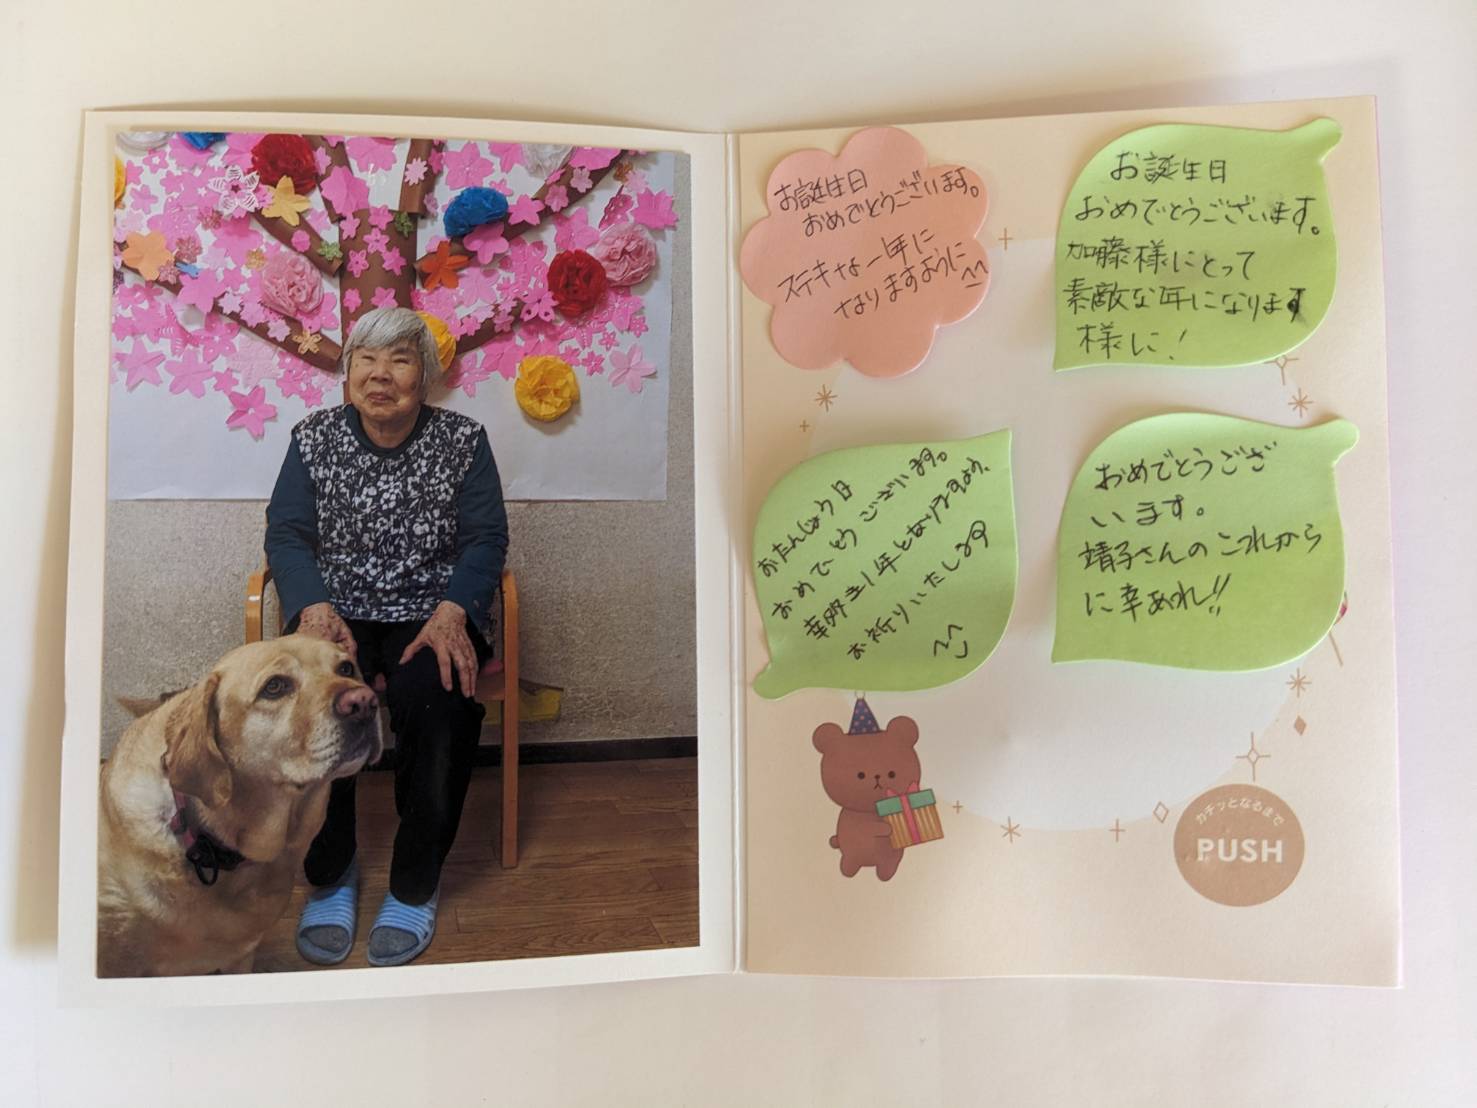 お誕生日
おめでとうございます。
ステキな一年に
なりますように
お誕生日
おめでとうございます。
加藤様にとって
素敵な年になります
様に!
おたんじょう日
おめでとうございます。
幸多き1年となりますよう、
お祈りいたします
おめでとうござ
います。
靖子さんのこれから
に幸あれ!!
カチッとなるまで
PUSH